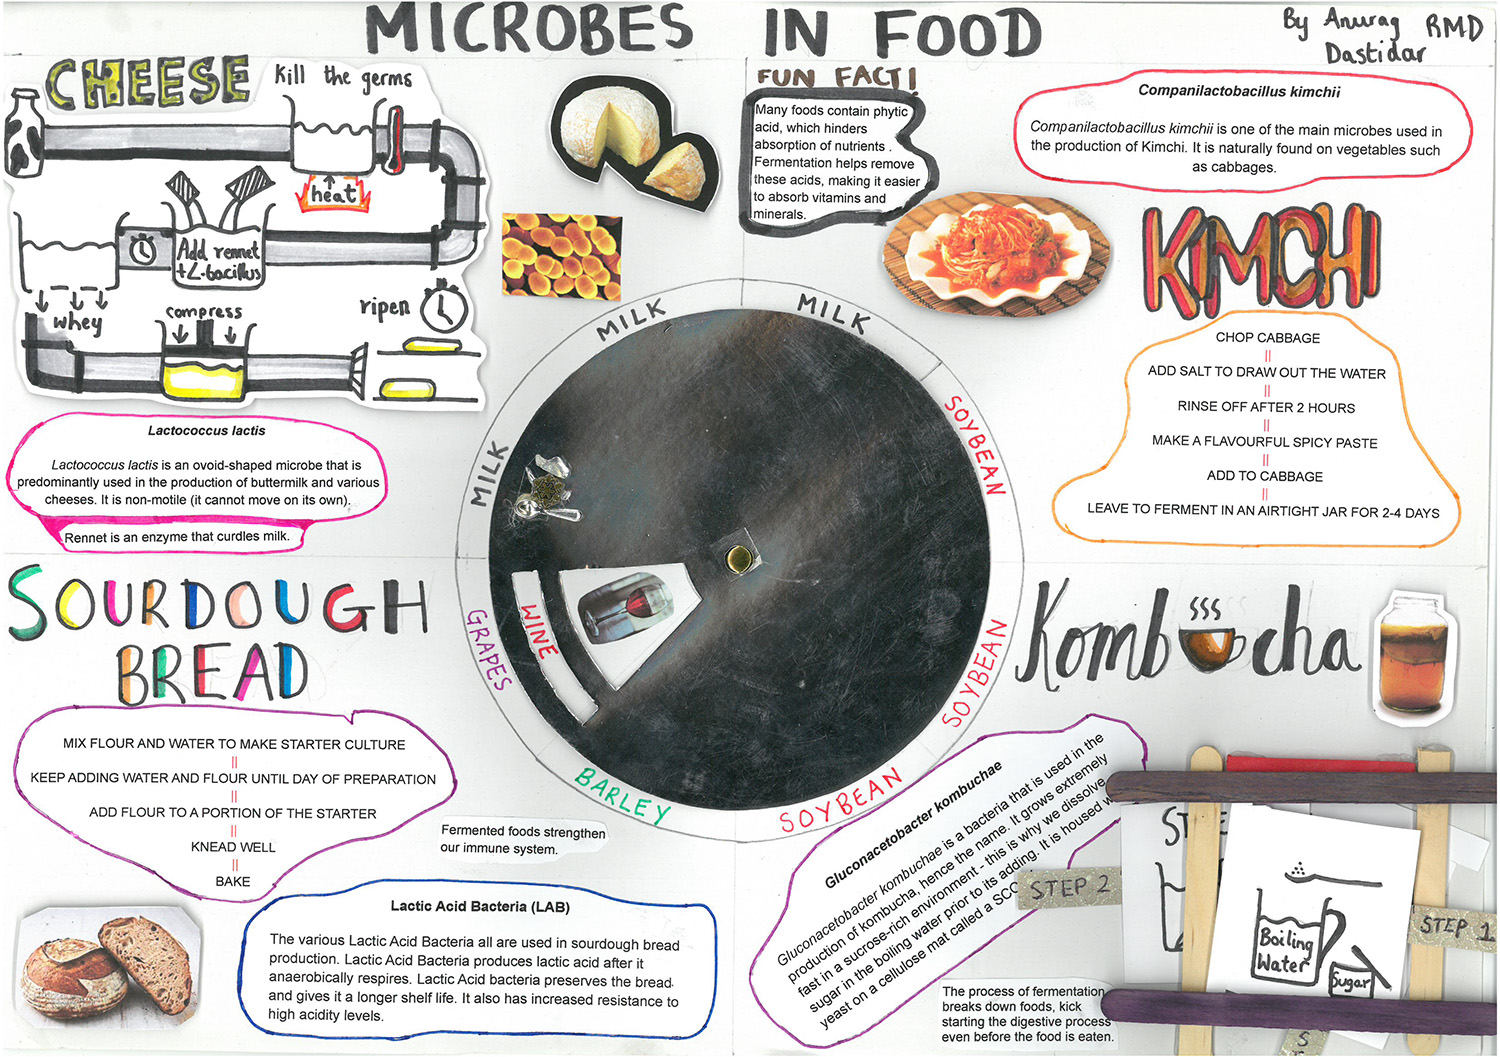 MICROBES IN FOOD
By Anurag RMD
Dastidar
CHEESE
kill the germs
heat
Add rennet
+ L. bacillus
whey
compress
ripen
Lactococcus lactis
Lactococcus lactis is an ovoid-shaped microbe that is
predominantly used in the production of buttermilk and various
cheeses. It is non-motile (it cannot move on its own).
Rennet is an enzyme that curdles milk.
FUN FACT!
Many foods contain phytic
acid, which hinders
absorption of nutrients .
Fermentation helps remove
these acids, making it easier
to absorb vitamins and
minerals.
Companilactobacillus kimchii
Companilactobacillus kimchii is one of the main microbes used in
the production of Kimchi. It is naturally found on vegetables such
as cabbages.
KIMCHI
CHOP CABBAGE
ADD SALT TO DRAW OUT THE WATER
RINSE OFF AFTER 2 HOURS
MAKE A FLAVOURFUL SPICY PASTE
ADD TO CABBAGE
LEAVE TO FERMENT IN AN AIRTIGHT JAR FOR 2-4 DAYS
MILK
MILK
SOYBEAN
SOYBEAN
SOYBEAN
BARLEY
GRAPES
MILK
WINE
SOURDOUGH
BREAD
MIX FLOUR AND WATER TO MAKE STARTER CULTURE
KEEP ADDING WATER AND FLOUR UNTIL DAY OF PREPARATION
ADD FLOUR TO A PORTION OF THE STARTER
KNEAD WELL
BAKE
Fermented foods strengthen
our immune system.
Lactic Acid Bacteria (LAB)
The various Lactic Acid Bacteria all are used in sourdough bread
production. Lactic Acid Bacteria produces lactic acid after it
anaerobically respires. Lactic Acid bacteria preserves the bread
and gives it a longer shelf life. It also has increased resistance to
high acidity levels.
Kombucha
Gluconacetobacter kombuchae
Gluconacetobacter kombuchae is a bacteria that is used in the
production of kombucha, hence the name. It grows extremely
fast in a sucrose-rich environment - this is why we dissolve
sugar in the boiling water prior to its adding. It is housed
yeast on a cellulose mat called a
The process of fermentation
breaks down foods, kick
starting the digestive process
even before the food is eaten.
STEP 2
STEP 1
Boiling
Water
Sugar